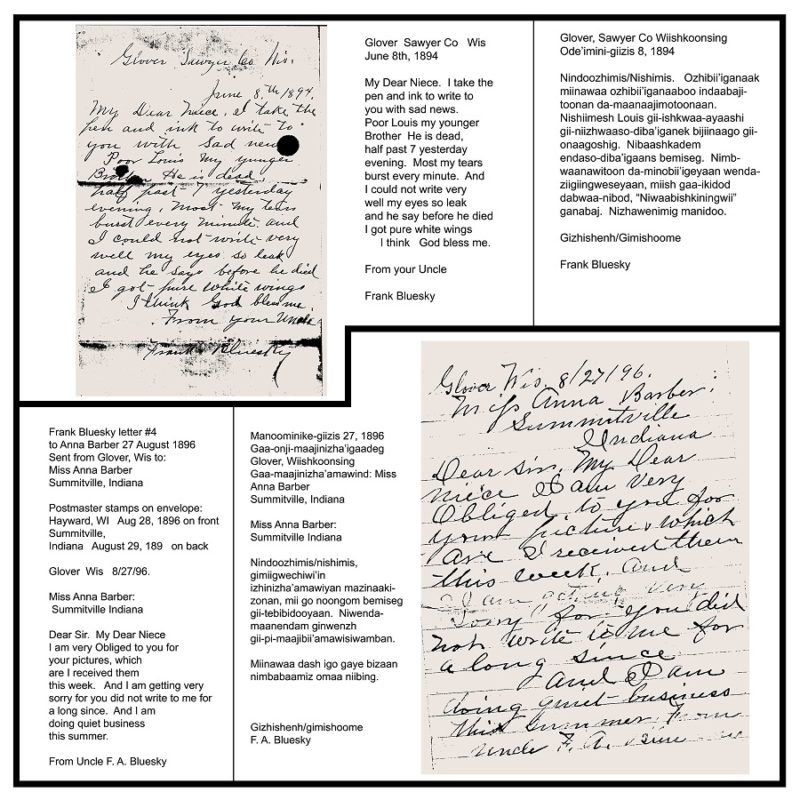 Glover Sawyer Co Wis.
June 8.th/1894.
My Dear Niece. I take the
pen and ink to write to
you with Sad news
Poor Louis my younger
Brother He is dead,
half past 7 yesterday
evening. Most my tears
burst every minute. and
I could not write very
well my eyes so leak
and he says before he died
I got pure white wings
I think God bless me
From your Uncle
Frank Bluesky
Glover Sawyer Co Wis
June 8th, 1894
My Dear Niece. I take the
pen and ink to write to
you with sad news.
Poor Louis my younger
Brother He is dead,
half past 7 yesterday
evening. Most my tears
burst every minute. And
I could not write very
well my eyes so leak
and he say before he died
I got pure white wings
I think God bless me.
From your Uncle
Frank Bluesky
Glover, Sawyer Co Wiishkoonsing
Ode'imini-giizis 8, 1894
Nindoozhimis/Nishimis. Ozhibii'iganaak
miinawaa ozhibii'iganaaboo indaabaji-
toonan da-maanaajimotoonaan.
Nishiimesh Louis gii-ishkwaa-ayaashi
gii-niizhwaaso-diba'iganek bijiinaago gii-
onaagoshig. Nibaashkadem
endaso-diba'igaans bemiseg. Nimb-
waanawitoon da-minobii'igeyaan wenda-
ziigiingweseyaan, miish gaa-ikidod
dabwaa-nibod, "Niwaabishkiningwii"
ganabaj. Nizhawenimig manidoo.
Gizhishenh/Gimishoome
Frank Bluesky
Frank Bluesky letter #4
to Anna Barber 27 August 1896
Sent from Glover, Wis to:
Miss Anna Barber
Summitville, Indiana
Postmaster stamps on envelope:
Hayward, WI Aug 28, 1896 on front
Summitville,
Indiana August 29, 189 on back
Glover Wis 8/27/96.
Miss Anna Barber:
Summitville Indiana
Dear Sir. My Dear Niece
I am very Obliged to you for
your pictures, which
are I received them
this week. And I am getting very
sorry for you did not write to me for
a long since. And I am
doing quiet business
this summer.
From Uncle F. A. Bluesky
Manoominike-giizis 27, 1896
Gaa-onji-maajinizha'igaadeg
Glover, Wiishkoonsing
Gaa-maajinizha'amawind: Miss
Anna Barber
Summitville, Indiana
Miss Anna Barber:
Summitville Indiana
Nindoozhimis/nishimis,
gimiigwechiwi'in
izhinizha'amawiyan mazinaaki-
zonan, mii go noongom bemiseg
gii-tebibidooyaan. Niwenda-
maanendam ginwenzh
gii-pi-maajibii'amawisiwamban.
Miinawaa dash igo gaye bizaan
nimbabaamiz omaa niibing.
Gizhishenh/gimishoome
F. A. Bluesky
Glover Wis. 8/27/96.
Miss Anna Barber:
Summitville
Indiana
Dear Sir, My Dear
niece I am very
Obliged to you for
your pictures which
are I received them
this week, And
I am very
Sorry for you did
not write to me for
a long since
And I am
doing quiet business
this Summer. From
Uncle F. A.